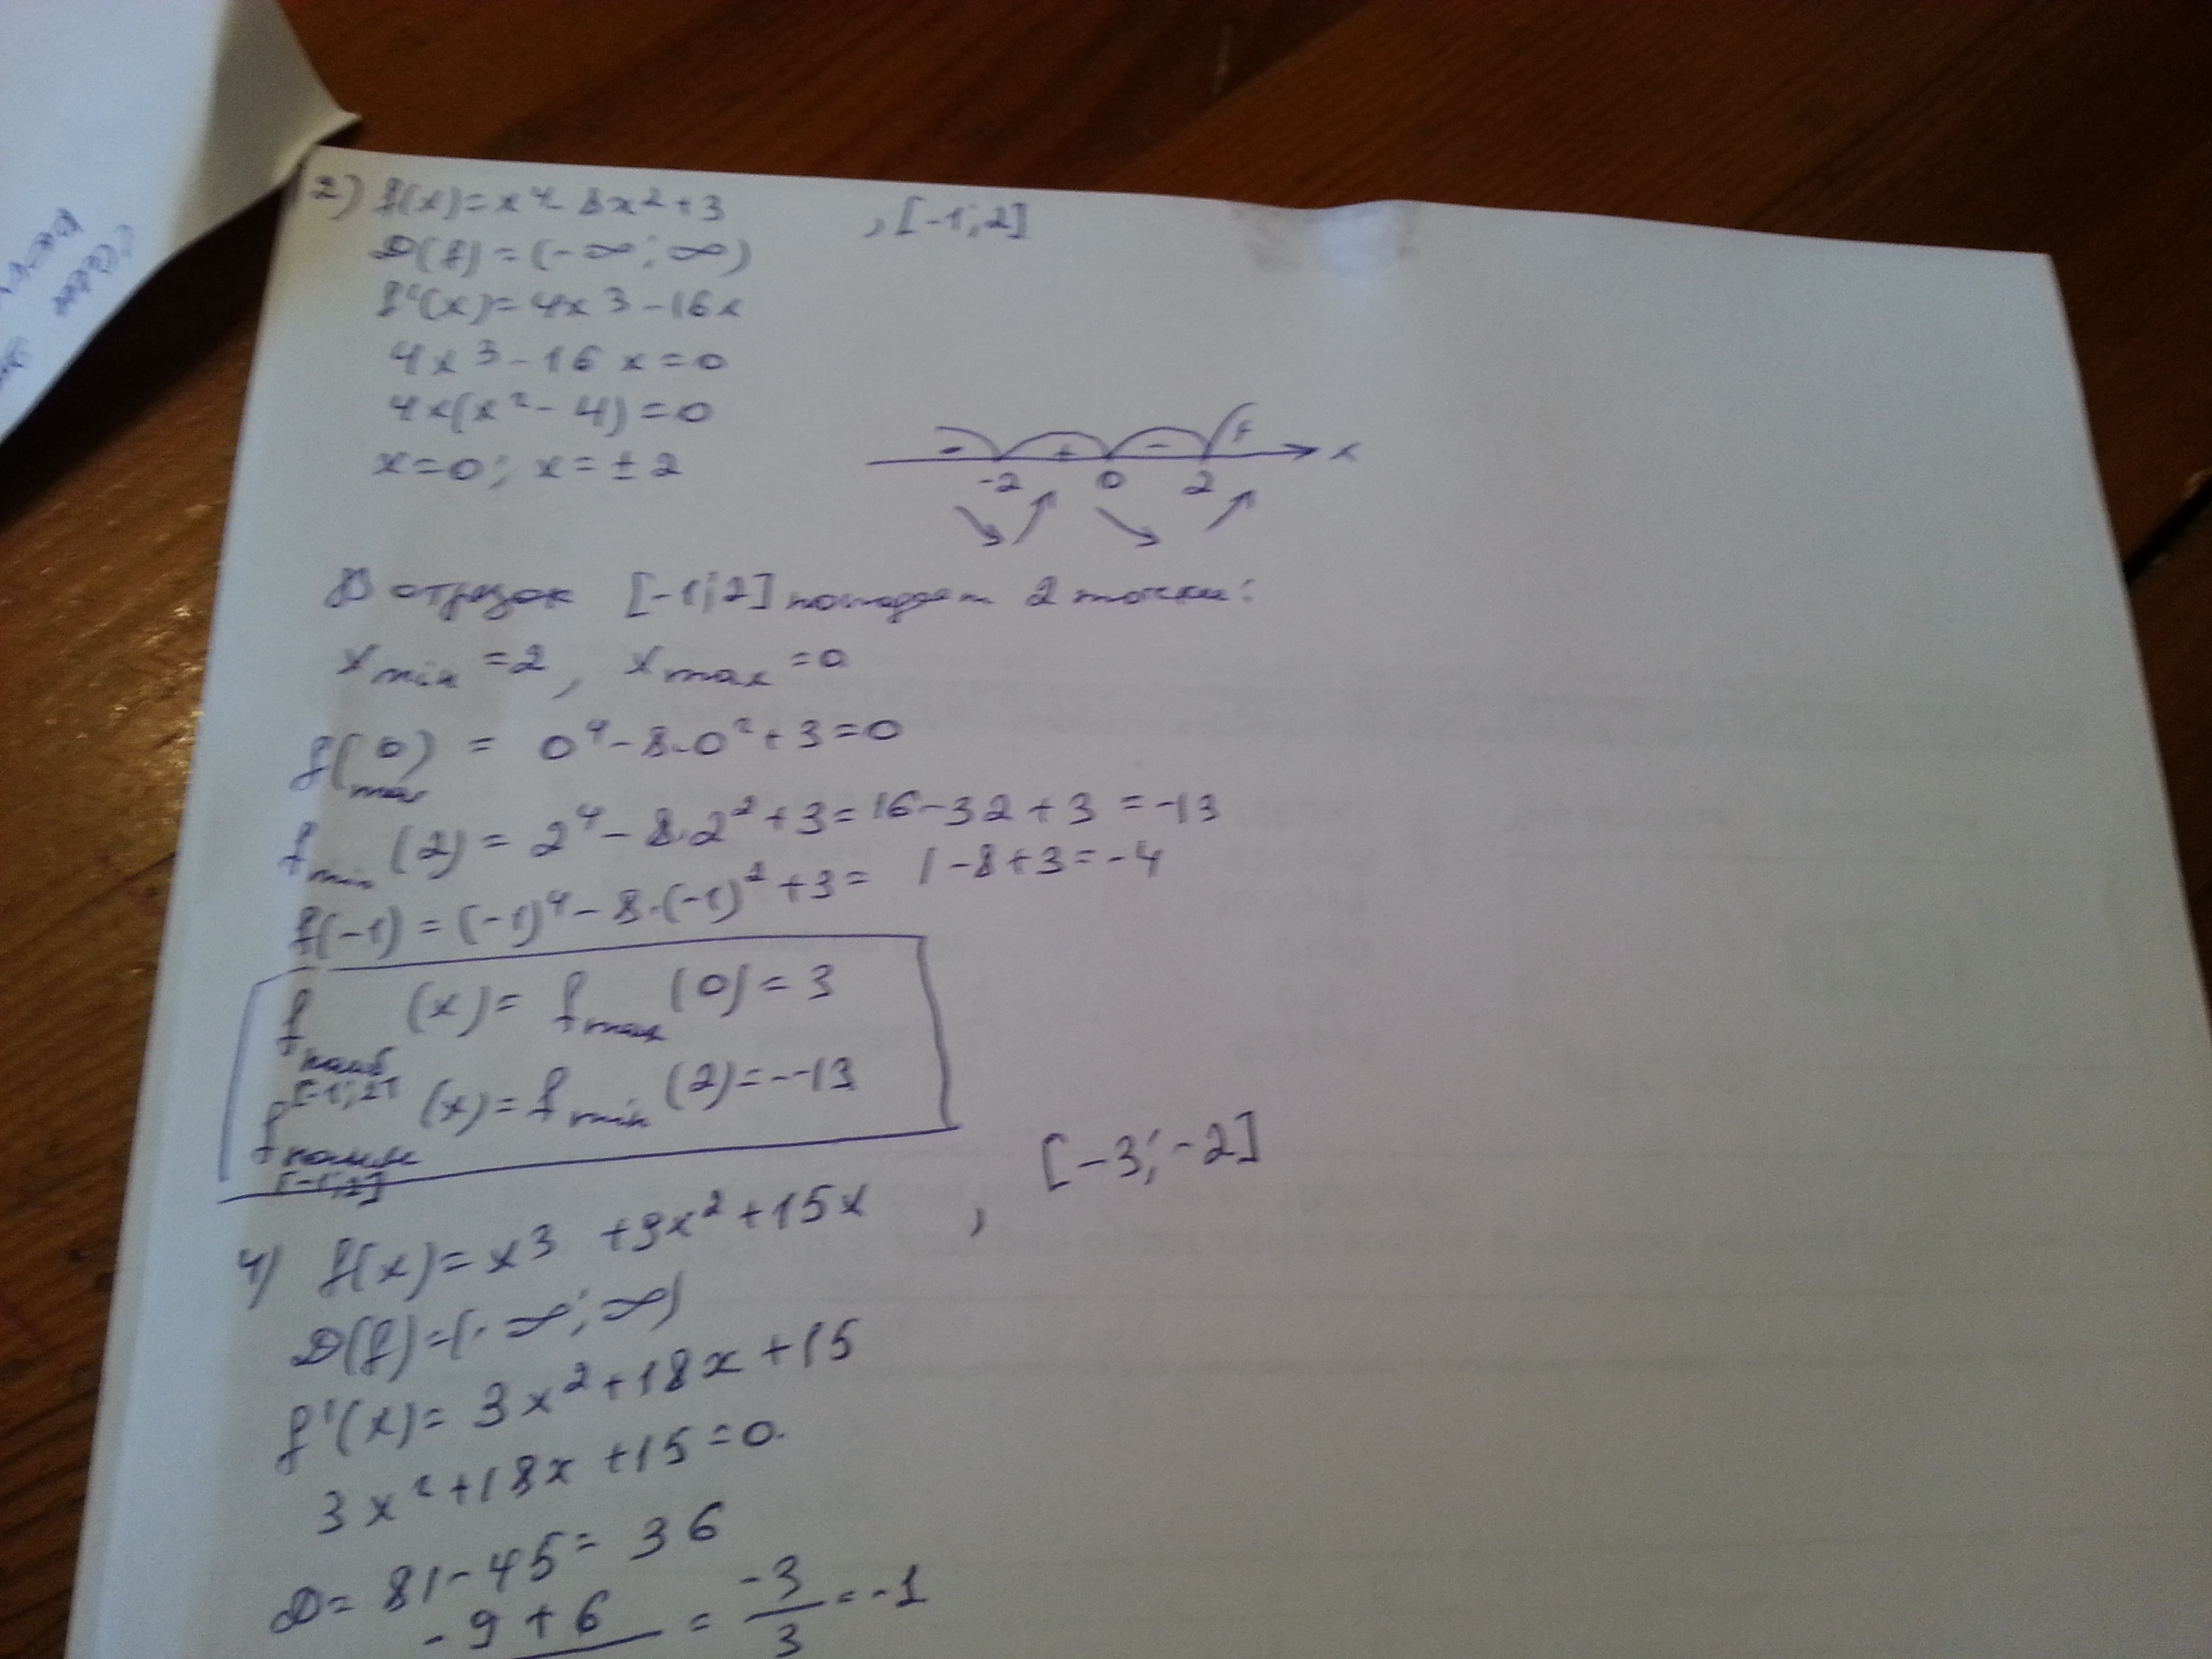 2) f(x)=x⁴-8x²+3 , [-1;2]
D(f)=(-∞;∞)
f'(x)=4x³-16x
4x³-16x=0
4x(x²-4)=0
x=0; x=±2
- + - + x
-2 0 2
В отрезок [-1;2] попадает 2 точки:
x min =2, x max =0
f(0) max = 0⁴-8·0²+3=0
f min (2) = 2⁴-8·2²+3=16-32+3=-13
f(-1)=(-1)⁴-8·(-1)²+3= 1-8+3=-4
f наиб [-1;2] (x)= f max (0)=3
f наим [-1;2] (x)= f min (2)=-13
4) f(x)=x³+9x²+15x , [-3;-2]
D(f)=(-∞;∞)
f'(x)=3x²+18x+15
3x²+18x+15=0.
D=81-45=36
-9+6 = -3/3 =-1